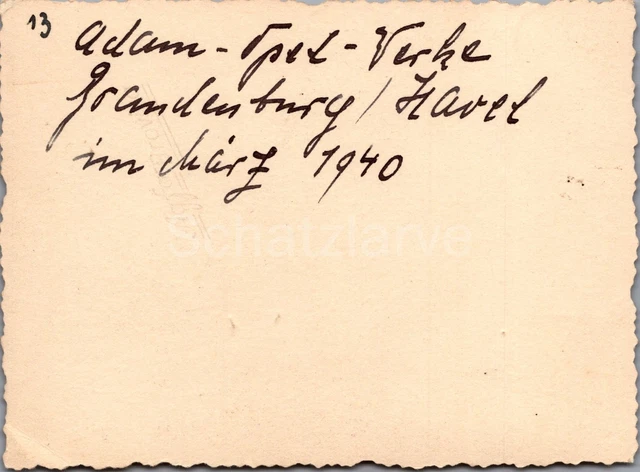 13
Adam-Opel-Werke
Brandenburg / Havel
im März 1940
Schatzlarve